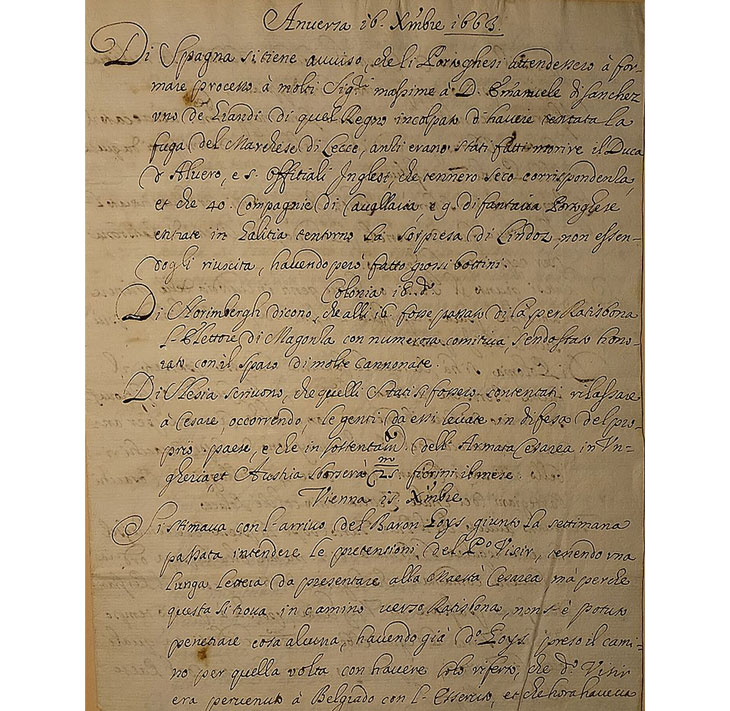 Anversa 16. Xmbre 1663.
Di Spagna si tiene avviso, che li Portoghesi attendessero à for-
mare processo à molti Sigri massime à D. Emanuele di Sanchez
uno de Grandi di quel Regno incolpato d'havere tentata la
fuga del Marchese di Lecce, anzi erano stati fatti morire il Duca
d'Alvero, e 5. offitiali Inglesi, che tennero seco corrispondenza
et che 40. Compagnie di Cavallaria, e 9. di fantaria Portoghese
entrate in Galitia tentorno la sorpresa di Lindoz, non essen-
dogli riuscita, havendo però fatto grossi bottini.
Colonia 18. do
Di Norimbergh dicono, che alli 16 fosse passato di là per Ratisbona
l'Elettore di Magonza con numerosa comitiva, sendo stato hono-
rato con il sparo di molte Cannonate.
Di Slesia scrivono, che quelli Stati si fossero contentati rilassare
à Cesare, occorrendo, le genti da essi levate in difesa del pro-
prio paese, e che in sostentam.to dell'Armata Cesarea in Vn-
gheria, et Austria sborserà fiorini il mese.
Vienna 15. Xmbre
Si stimava con l'arrivo del Baron Goys, giunto la settimana
passata intendere le pretensioni del Po Visir, tenendo una
lunga lettera da presentare alla Maestà Cesarea mà perche
questa si trova in camino verso Ratisbona, non s'è potuto
penetrare cosa alcuna, havendo già do Goys preso il cami-
no per quella volta con havere solo riferto, che do Visir
era pervenuto à Belgrado con l'Essercito, et che hora haveva